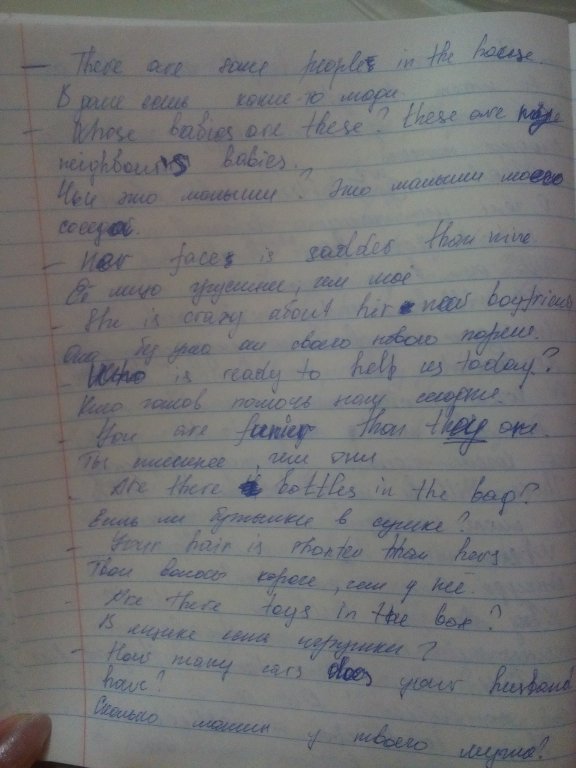 — There are some people in the house
В доме есть какие-то люди.
- Whose babies are these? these are my
neighbour's babies.
Чьи это малыши? Это малыши моего
соседа.
- Her face is sadder than mine
Её лицо грустнее, чем моё
- She is crazy about her new boyfriend
Она без ума от своего нового парня.
- Who is ready to help us today?
Кто готов помочь нам сегодня.
- You are funier than they are.
Ты смешнее чем они
- Are there bottles in the bag?
Есть ли бутылки в сумке?
- Your hair is shorter than hers
Твои волосы короче, чем у нее.
- Are there toys in the box?
В ящике есть игрушки?
- How many cars does your husband
have?
Сколько машин у твоего мужа?